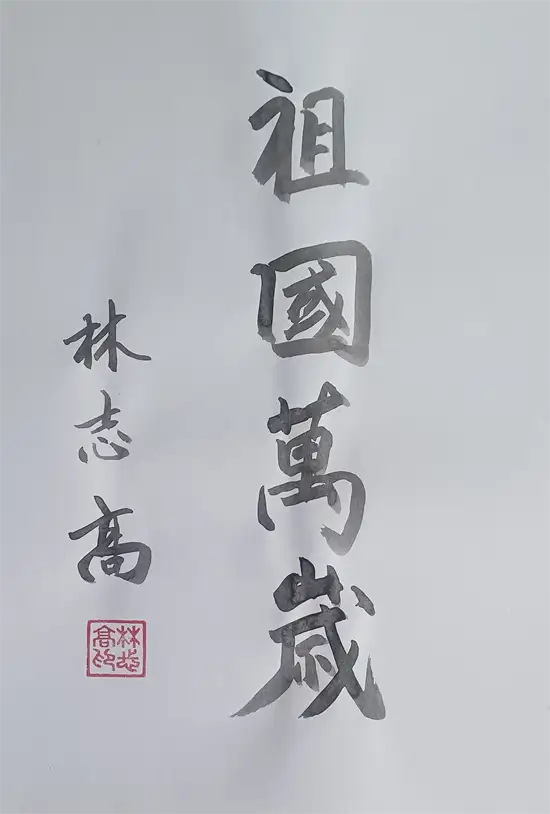 祖國萬歲
林志高
林志高印